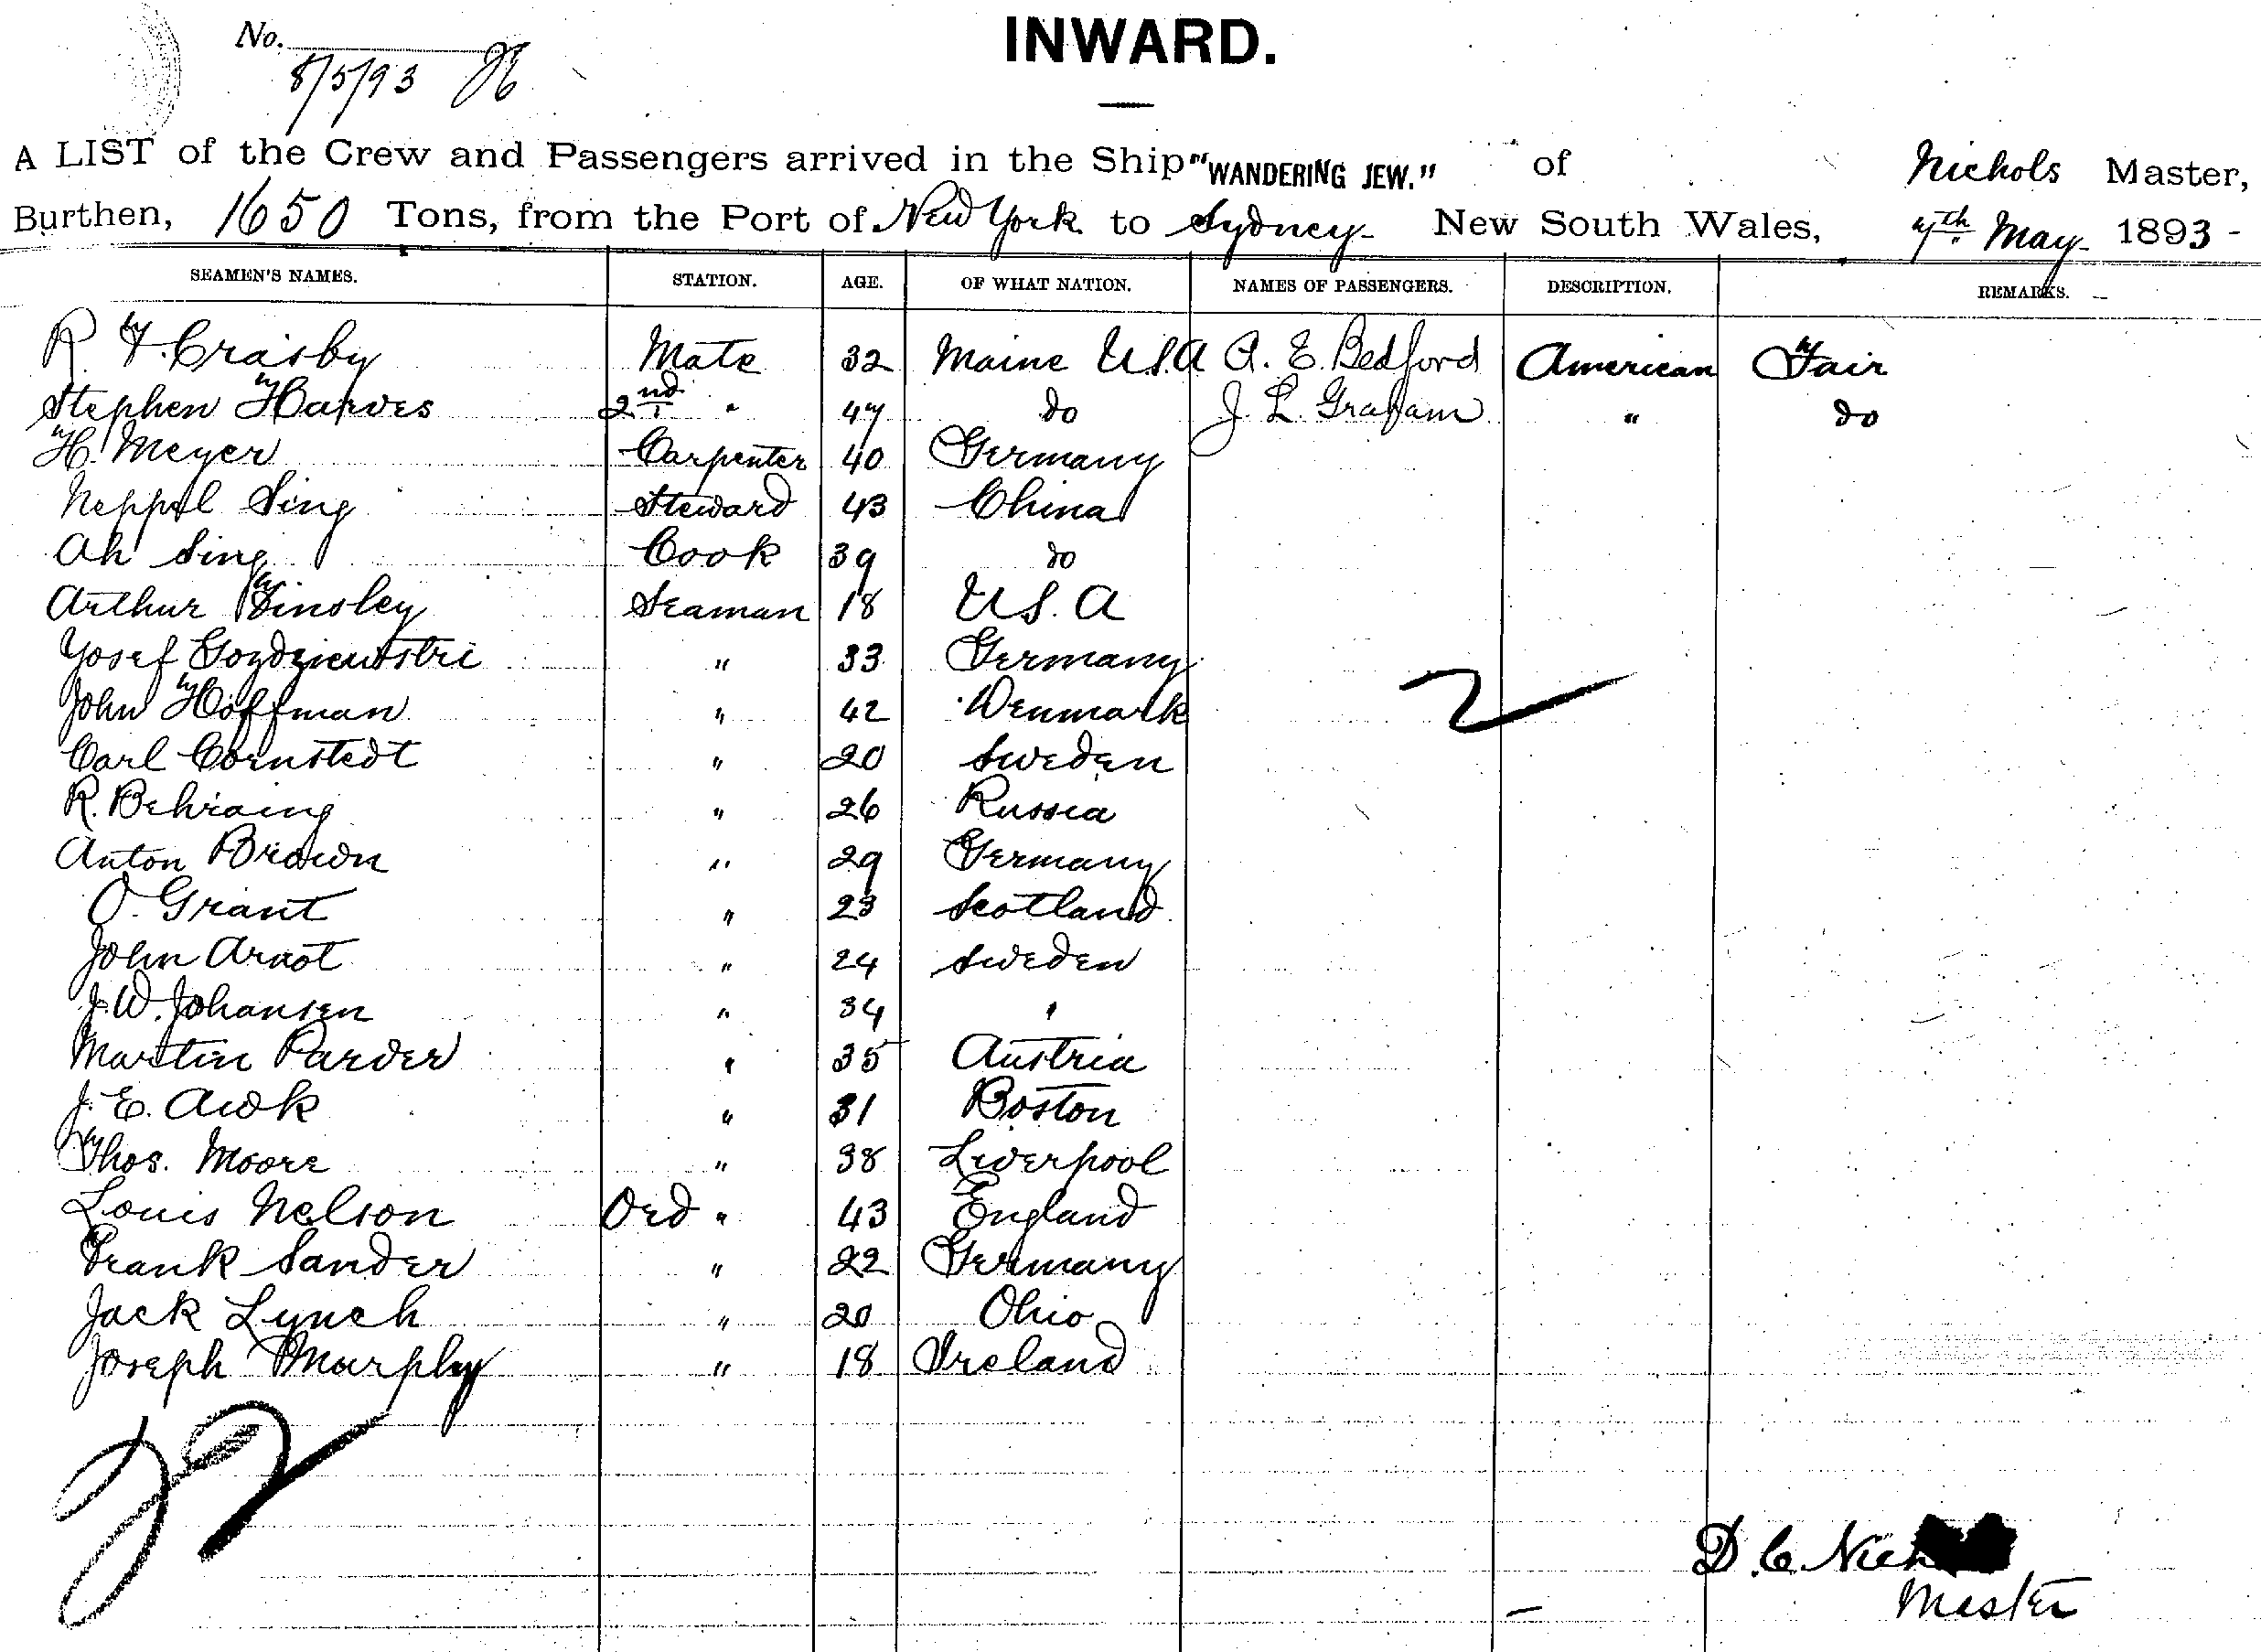 INWARD.
No.
8/5/93
A LIST of the Crew and Passengers arrived in the Ship "WANDERING JEW." of Nichols Master,
Burthen, 1650 Tons, from the Port of New York to Sydney New South Wales, 7th May 1893
SEAMEN'S NAMES. STATION. AGE. OF WHAT NATION. NAMES OF PASSENGERS. DESCRIPTION. REMARKS.
R. F. Crasby Mate 32 Maine U.S.A A. E. Bedford American Fair
Stephen 2nd " 47 do J. L. Graham " do
H. Meyer Carpenter 40 Germany
Sing Steward 43 China
Ah Sing Cook 39 do
Arthur Tinsley Seaman 18 U.S.A
Yosef " 33 Germany
John Hoffman " 42 Denmark
Carl Cornstedt " 20 Sweden
R. Behraing " 26 Russia
Anton Brown " 29 Germany
O. Grant " 23 Scotland
John Arnot " 24 Sweden
J. W. Johansen " 34 "
Martin Parder " 35 Austria
J. E. Awk " 31 Boston
Thos. Moore " 38 Liverpool
Louis Nelson Ord " 43 England
Frank Sander " 22 Germany
Jack Lynch " 20 Ohio
Joseph Murphy " 18 Ireland
2
22
D. C.
Master